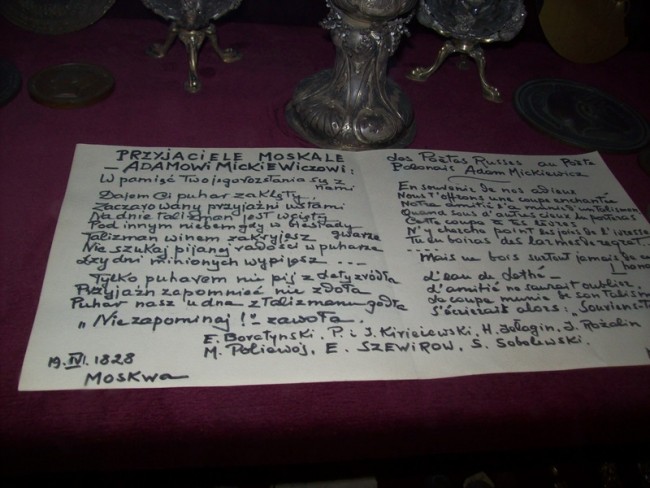 PRZYJACIELE MOSKALE
— ADAMOWI MICKIEWICZOWI :
W pamięć Twojego rozstania się z
nami
Dajem Ci puhar zaklęty,
Zaczarowany przyjaźni ustami
Na dnie talizman jest wcięty
Pod innym niebem gdy w biesiady
gwarze
Talizman winem zakryjesz
Nie szukaj pijanej radości w puharze
Łzy dni minionych wypijesz ....
Tylko puharem nie pij z Lety źródła
Przyjaźń zapomnieć nie zdoła
Puhar nasz u dna z talizmanu godła
„Nie zapominaj !" – zawoła.
E. Boratyński, P. i J. Kiriejewski, H.
J. Rożalin
M. Poliewoj, E. SZEWIROW, S. Sobolewski.
19. IV. 1828
MOSKWA
Les Poètes Russes au Poète
Polonais Adam Mickiewicz
En souvenir de nos adieux
Nous t'offrons une coupe enchantée
Notre amitié l'a munie d'un talisman
Quand sous d'autres cieux tu porteras
Cette coupe à tes lèvres
N'y cherche point les joies de l'ivresse
Tu en boiras des larmes de regret...
... Mais ne bois surtout jamais de
d'eau de Léthé –
d'amitié ne saurait oublier.
La coupe munie de son talisman
s'écrierait alors : „Souviens-